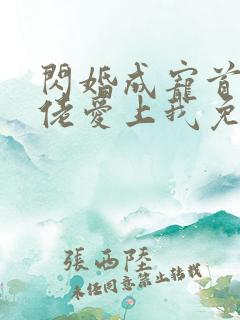 閃婚成寵首
佬愛上我免
張西陸
未經同意禁止轉載